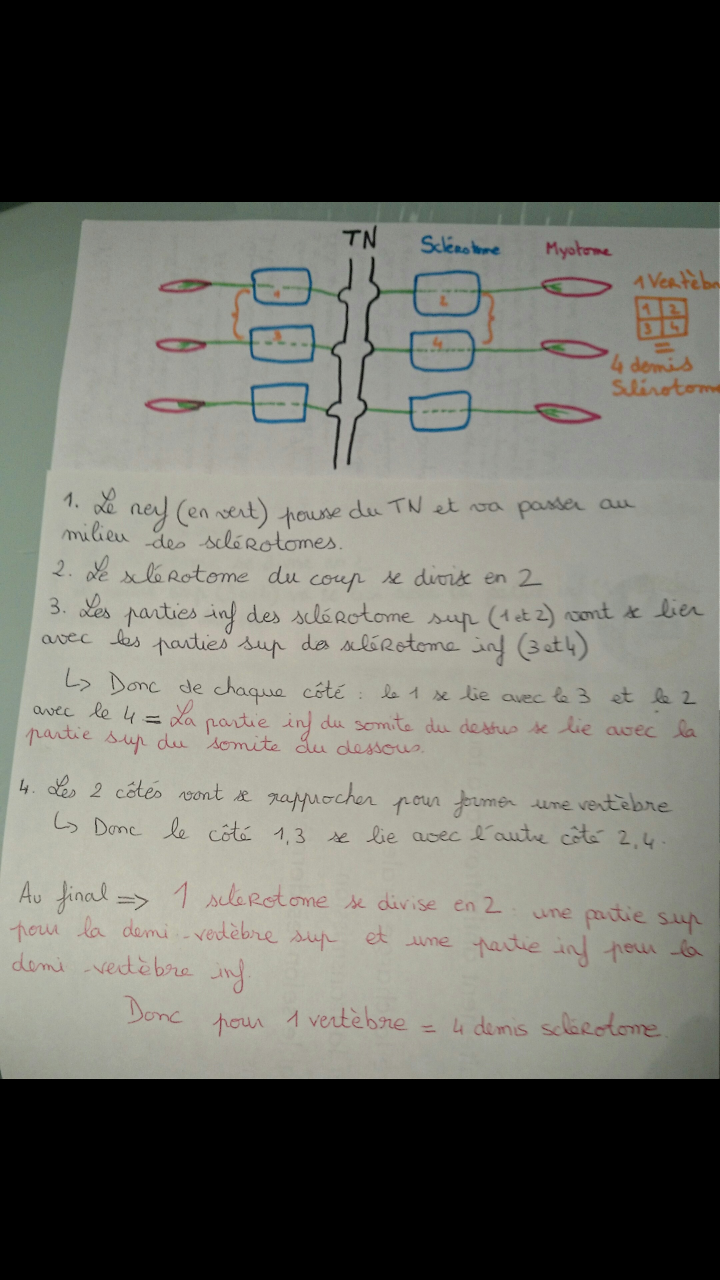 TN
Sclérotome
Myotome
1 Vertèbr
1
2
1 2
3 4
3
4
=
4 demis
Sclérotome
1. Le nerf (en vert) pousse du TN et va passer au
milieu des sclérotomes.
2. Le sclérotome du coup se divise en 2
3. Les parties inf des sclérotome sup (1 et 2) vont se lier
avec les parties sup des sclérotome inf (3 et 4)
↳ Donc de chaque côté : le 1 se lie avec le 3 et le 2
avec le 4 = La partie inf du somite du dessus se lie avec la
partie sup du somite du dessous.
4. Les 2 côtés vont se rapprocher pour former une vertèbre
↳ Donc le côté 1,3 se lie avec l'autre côté 2,4.
Au final => 1 sclérotome se divise en 2 : une partie sup
pour la demi-vertèbre sup et une partie inf pour la
demi-vertèbre inf.
Donc pour 1 vertèbre = 4 demis sclérotome.